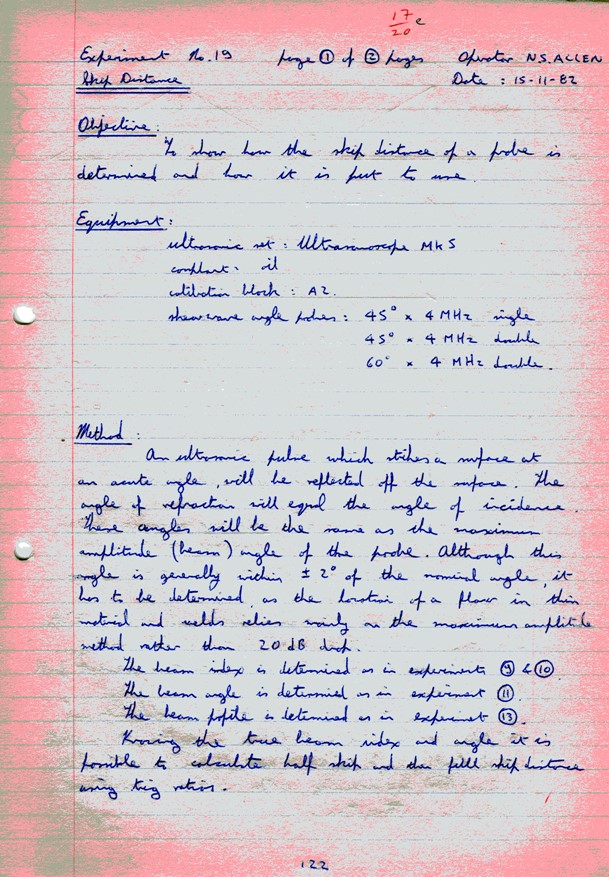 17/20 c
Experiment No. 19 page ① of ② pages Operator N.S. ALLEN
Skip Distance Date : 15-11-82
Objective :
To show how the skip distance of a probe is
determined and how it is put to use.
Equipment :
ultrasonic set : Ultrasonoscope Mk 5
couplant : oil
calibration block : A2.
shearwave angle probes : 45° x 4 MHz single
45° x 4 MHz double
60° x 4 MHz double.
Method :
An ultrasonic pulse which strikes a surface at
an acute angle, will be reflected off the surface. The
angle of refraction will equal the angle of incidence.
These angles will be the same as the maximum
amplitude (beam) angle of the probe. Although this
angle is generally within ± 2° of the nominal angle, it
has to be determined, as the location of a flaw in thin
material and welds relies mainly on the maximum amplitude
method rather than 20 dB drop.
The beam index is determined as in experiments ⑨ & ⑩
The beam angle is determined as in experiment ⑪.
The beam profile is determined as in experiment ⑬.
Knowing the true beam index and angle it is
possible to calculate half skip and then full skip distance
using trig ratios.
122